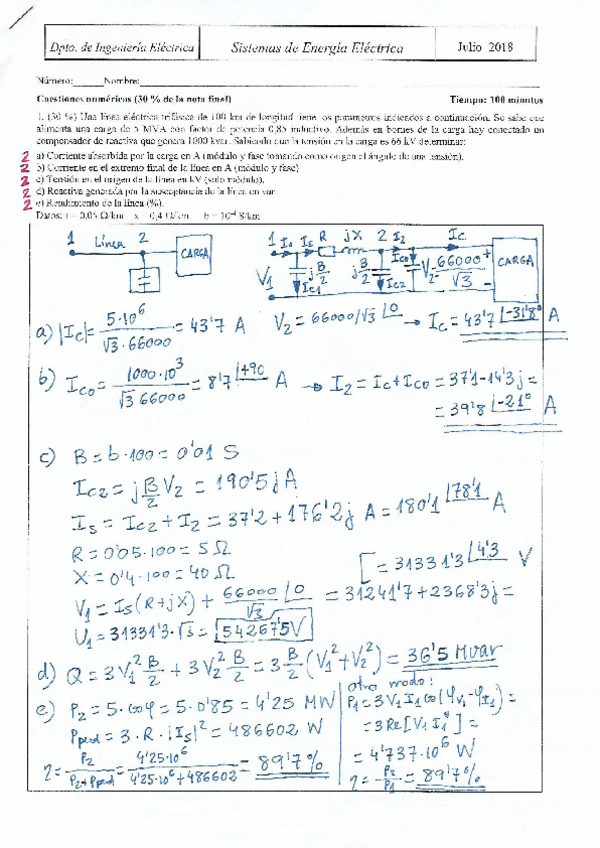 Dpto. de Ingeniería Eléctrica
Sistemas de Energía Eléctrica
Julio 2018
Número: Nombre:
Cuestiones numéricas (30 % de la nota final)
Tiempo: 100 minutos
1. (30 %) Una línea eléctrica trifásica de 100 km de longitud tiene los parámetros indicados a continuación. Se sabe que
alimenta una carga de 5 MVA con factor de potencia 0,85 inductivo. Además en bornes de la carga hay conectado un
compensador de reactiva que genera 1000 kvar. Sabiendo que la tensión en la carga es 66 kV determinar:
2 a) Corriente absorbida por la carga en A (módulo y fase tomando como origen el ángulo de una tensión).
2 b) Corriente en el extremo final de la línea en A (módulo y fase)
2 c) Tensión en el origen de la línea en kV (solo módulo).
2 d) Reactiva generada por la susceptancia de la línea en var
2 e) Rendimiento de la línea (%).
Datos: r = 0,05 Ω/km x = 0,4 Ω/km b = 10⁻⁴ S/km
1 Línea 2 CARGA
1 I1 Is R jX 2 I2 Ic
V1 jB/2 Ic1 jB/2 Ic2 Ico V2 = 66000/√3 + - CARGA
a) |Ic| = 5·10⁶/(√3·66000) = 43'7 A V2 = 66000/√3 ∠0 → Ic = 43'7 ∠-31'8° A
b) Ico = 1000·10³/(√3 66000) = 8'7 ∠+90 A → I2 = Ic + Ico = 37'1 - 14'3j =
= 39'8 ∠-21° A
c) B = b·100 = 0'01 S
Ic2 = j B/2 V2 = 190'5 j A
Is = Ic2 + I2 = 37'2 + 176'2j A = 180'1 ∠78'1 A
R = 0'05·100 = 5 Ω
X = 0'4·100 = 40 Ω
[ = 31331'3 ∠4'3 V
V1 = Is(R+jX) + 66000/√3 ∠0 = 31241'7 + 2368'3j =
U1 = 31331'3·√3 = 54267'5 V
d) Q = 3V1² B/2 + 3V2² B/2 = 3 B/2 (V1² + V2²) = 36'5 Mvar
e) P2 = 5·cosφ = 5·0'85 = 4'25 MW
Pperd = 3·R·|Is|² = 486602 W
η = P2/(P2+Pperd) = 4'25·10⁶/(4'25·10⁶+486602) = 89'7%
otro modo:
P1 = 3V1 I1 cos(φV1 - φI1) =
= 3Re[V1 I1*] =
= 4'737·10⁶ W
η = P2/P1 = 89'7%